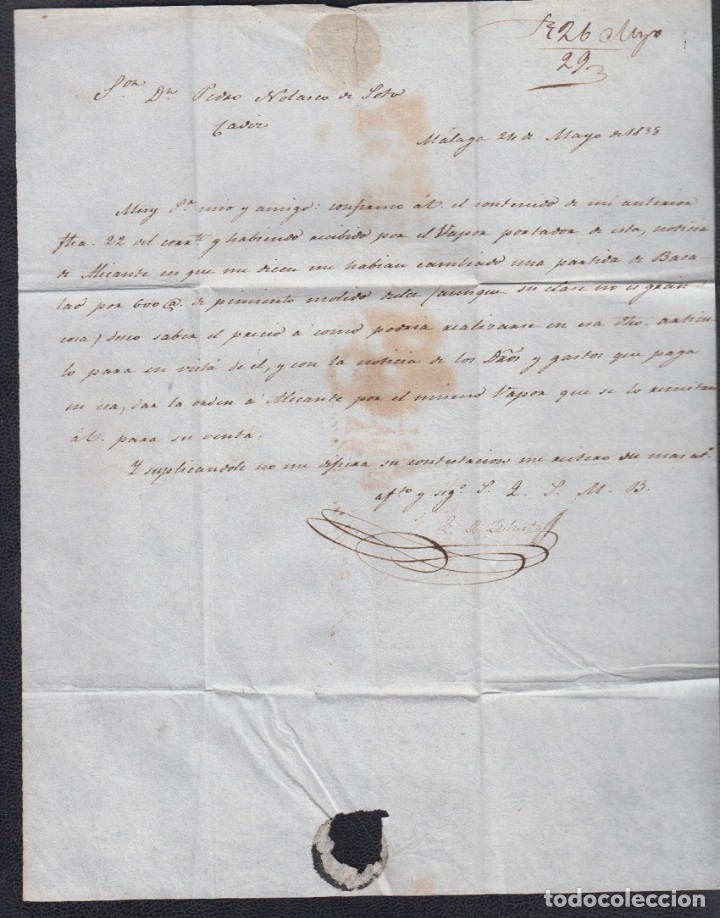 R 26 Mayo
29
Sor. Dn. Pedro Nolasco de Soto
Cadiz
Málaga 24 de Mayo de 1838
Muy Sr. mio y amigo: confirmo á V. el contenido de mi anterior
fha. 22 del corrte. y habiendo recibido por el Vapor portador de esta, noticia
de Alicante en que me dicen me habian cambiado una partida de Baca-
lao por 600 @. de pimiento molido dulce (aunque su clase no es gran
cosa) deseo saber el precio á como podria realizarse en esa dho. articu-
lo para en vista de el, y con la noticia de los Dros. y gastos que paga
en esa, dar la orden á Alicante por el mismo Vapor que se lo remitan
á V. para su venta.
Y suplicandole no me difiera su contestacion me reitero su mas at.
afto. y sego. S. Q. S. M. B.
todocoleccion.net